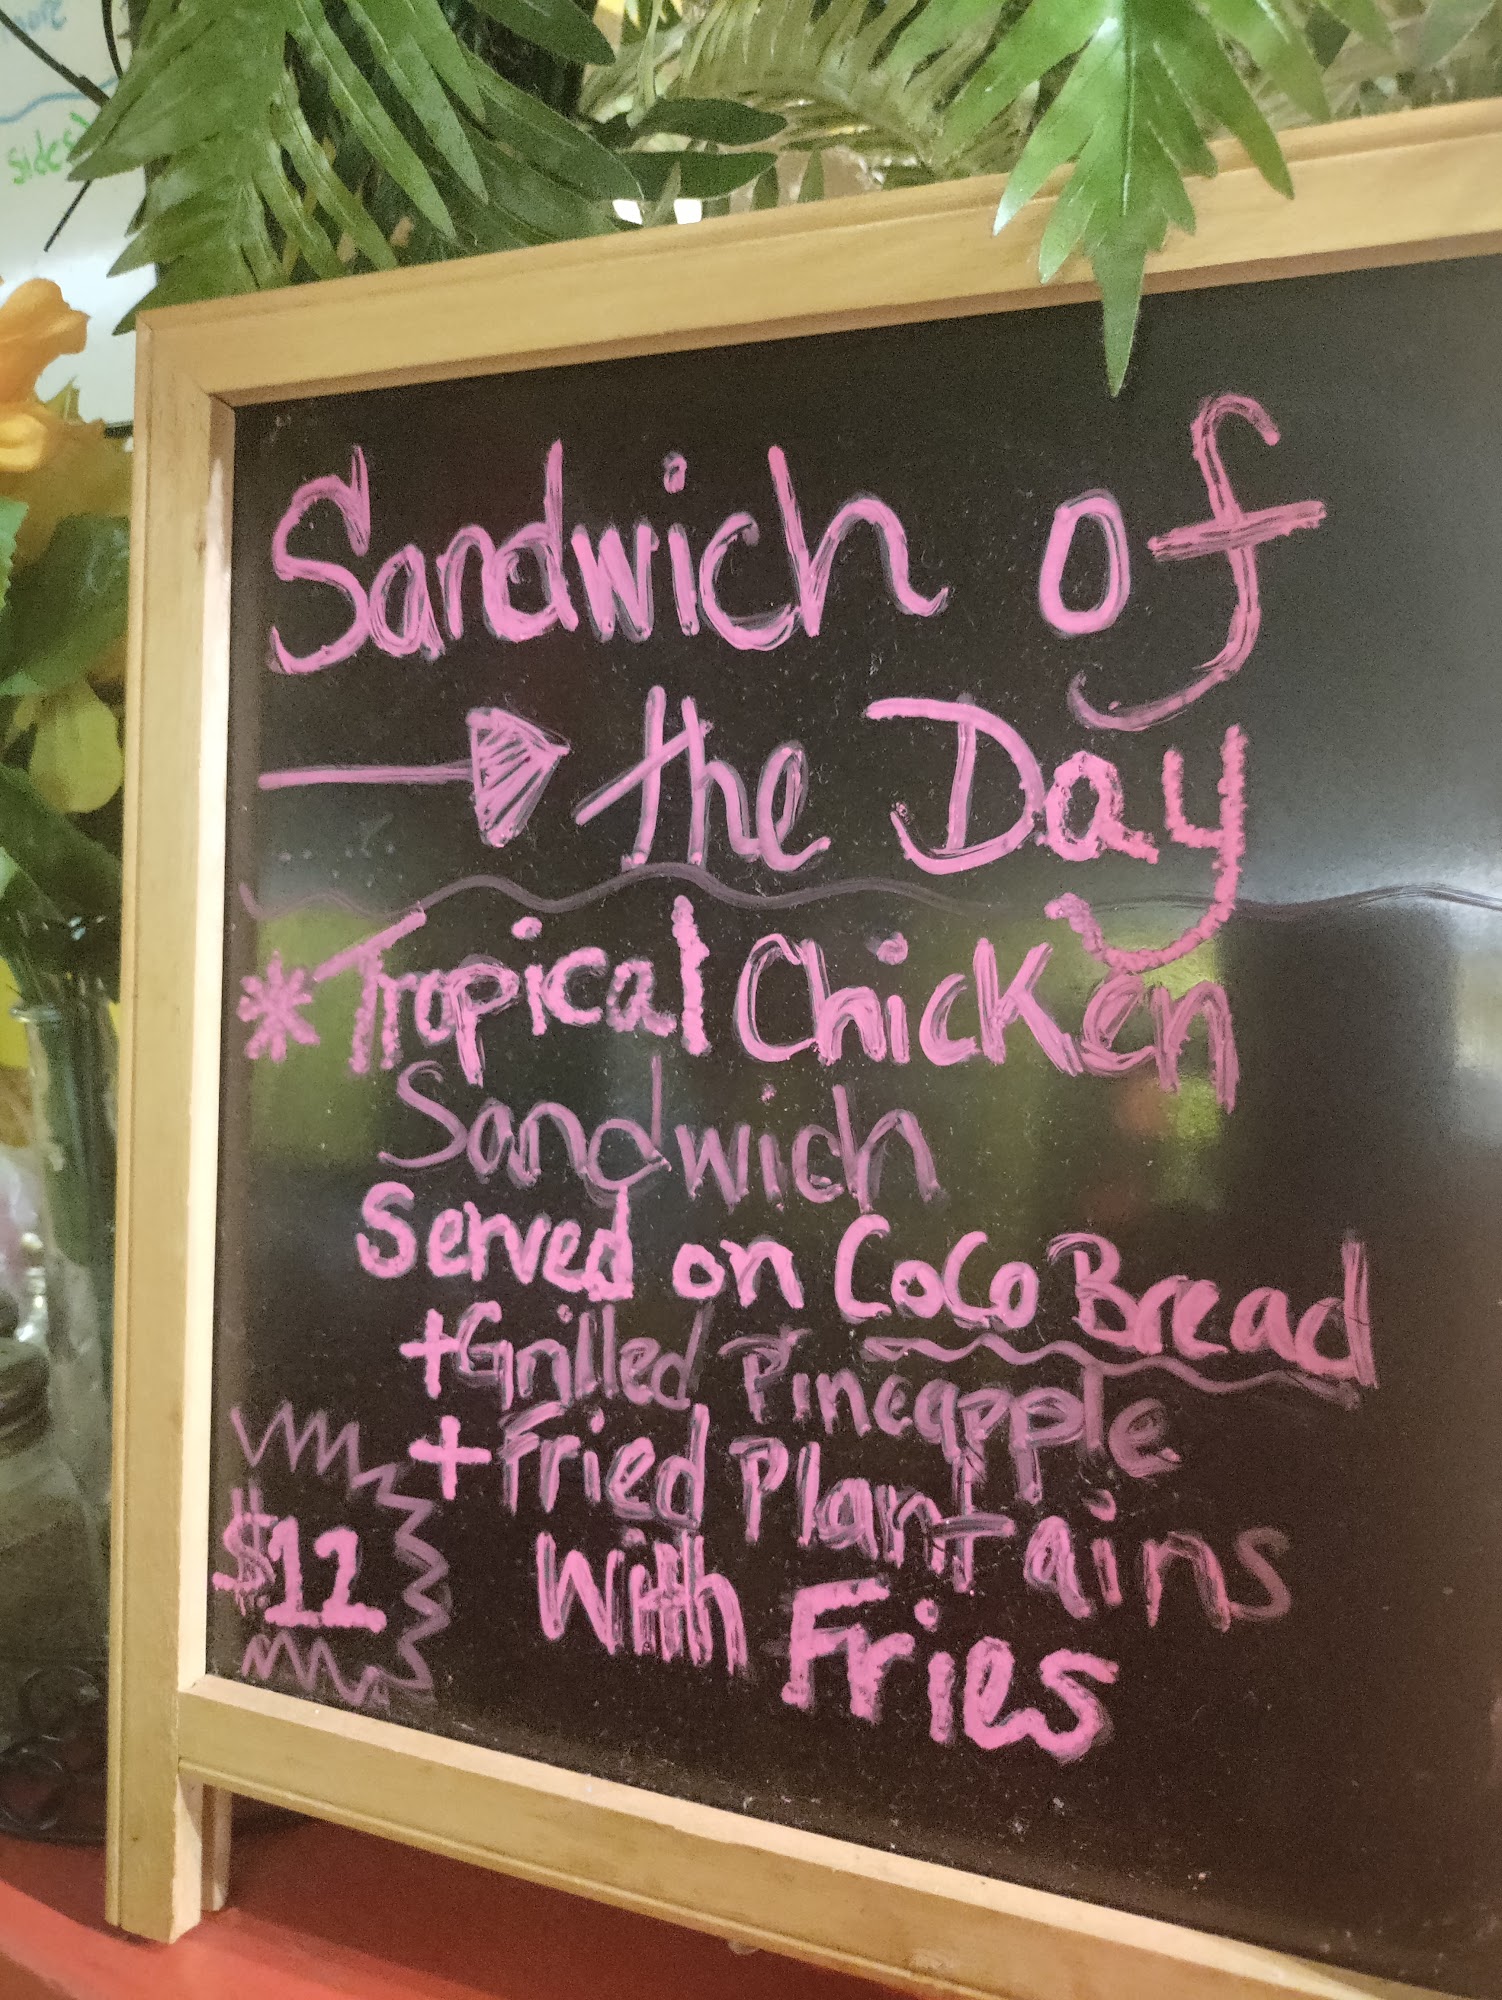 sides
Sandwich of
the Day
* Tropical Chicken
Sandwich
Served on CoCo Bread
+Grilled Pineapple
+ Fried Plantains
With Fries
$12